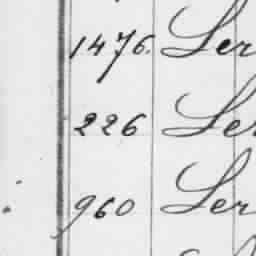 1476. Ser
226 Ser
960 Ser